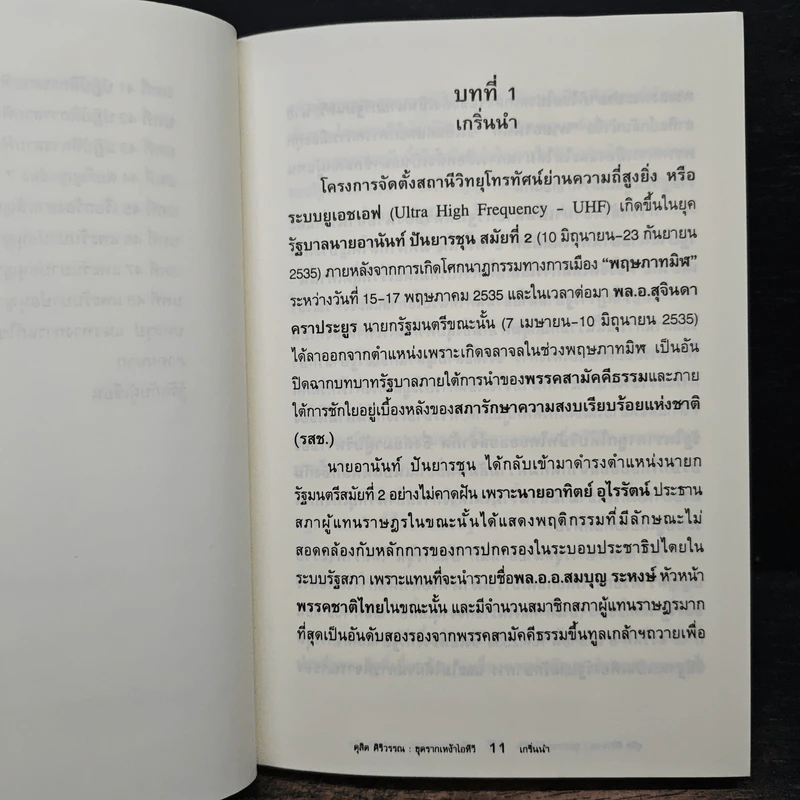 บทที่ 1
เกริ่นนำ
โครงการจัดตั้งสถานีวิทยุโทรทัศน์ย่านความถี่สูงยิ่ง หรือ
ระบบยูเอชเอฟ (Ultra High Frequency - UHF) เกิดขึ้นในยุค
รัฐบาลนายอานันท์ ปันยารชุน สมัยที่ 2 (10 มิถุนายน-23 กันยายน
2535) ภายหลังจากการเกิดโศกนาฏกรรมทางการเมือง “พฤษภาทมิฬ”
ระหว่างวันที่ 15-17 พฤษภาคม 2535 และในเวลาต่อมา พล.อ.สุจินดา
คราประยูร นายกรัฐมนตรีขณะนั้น (7 เมษายน-10 มิถุนายน 2535)
ได้ลาออกจากตำแหน่งเพราะเกิดจลาจลในช่วงพฤษภาทมิฬ เป็นอัน
ปิดฉากบทบาทรัฐบาลภายใต้การนำของพรรคสามัคคีธรรมและภาย
ใต้การชักใยอยู่เบื้องหลังของสภารักษาความสงบเรียบร้อยแห่งชาติ
(รสช.)
นายอานันท์ ปันยารชุน ได้กลับเข้ามาดำรงตำแหน่งนายก
รัฐมนตรีสมัยที่ 2 อย่างไม่คาดฝัน เพราะนายอาทิตย์ อุไรรัตน์ ประธาน
สภาผู้แทนราษฎรในขณะนั้นได้แสดงพฤติกรรมที่มีลักษณะไม่
สอดคล้องกับหลักการของการปกครองในระบอบประชาธิปไตยใน
ระบบรัฐสภา เพราะแทนที่จะนำรายชื่อพล.อ.อ.สมบุญ ระหงษ์ หัวหน้า
พรรคชาติไทยในขณะนั้น และมีจำนวนสมาชิกสภาผู้แทนราษฎรมาก
ที่สุดเป็นอันดับสองรองจากพรรคสามัคคีธรรมขึ้นทูลเกล้าฯถวายเพื่อ
ดุสิต ศิริวรรณ : ขุดรากเหง้าไอทีวี 11 เกริ่นนำ